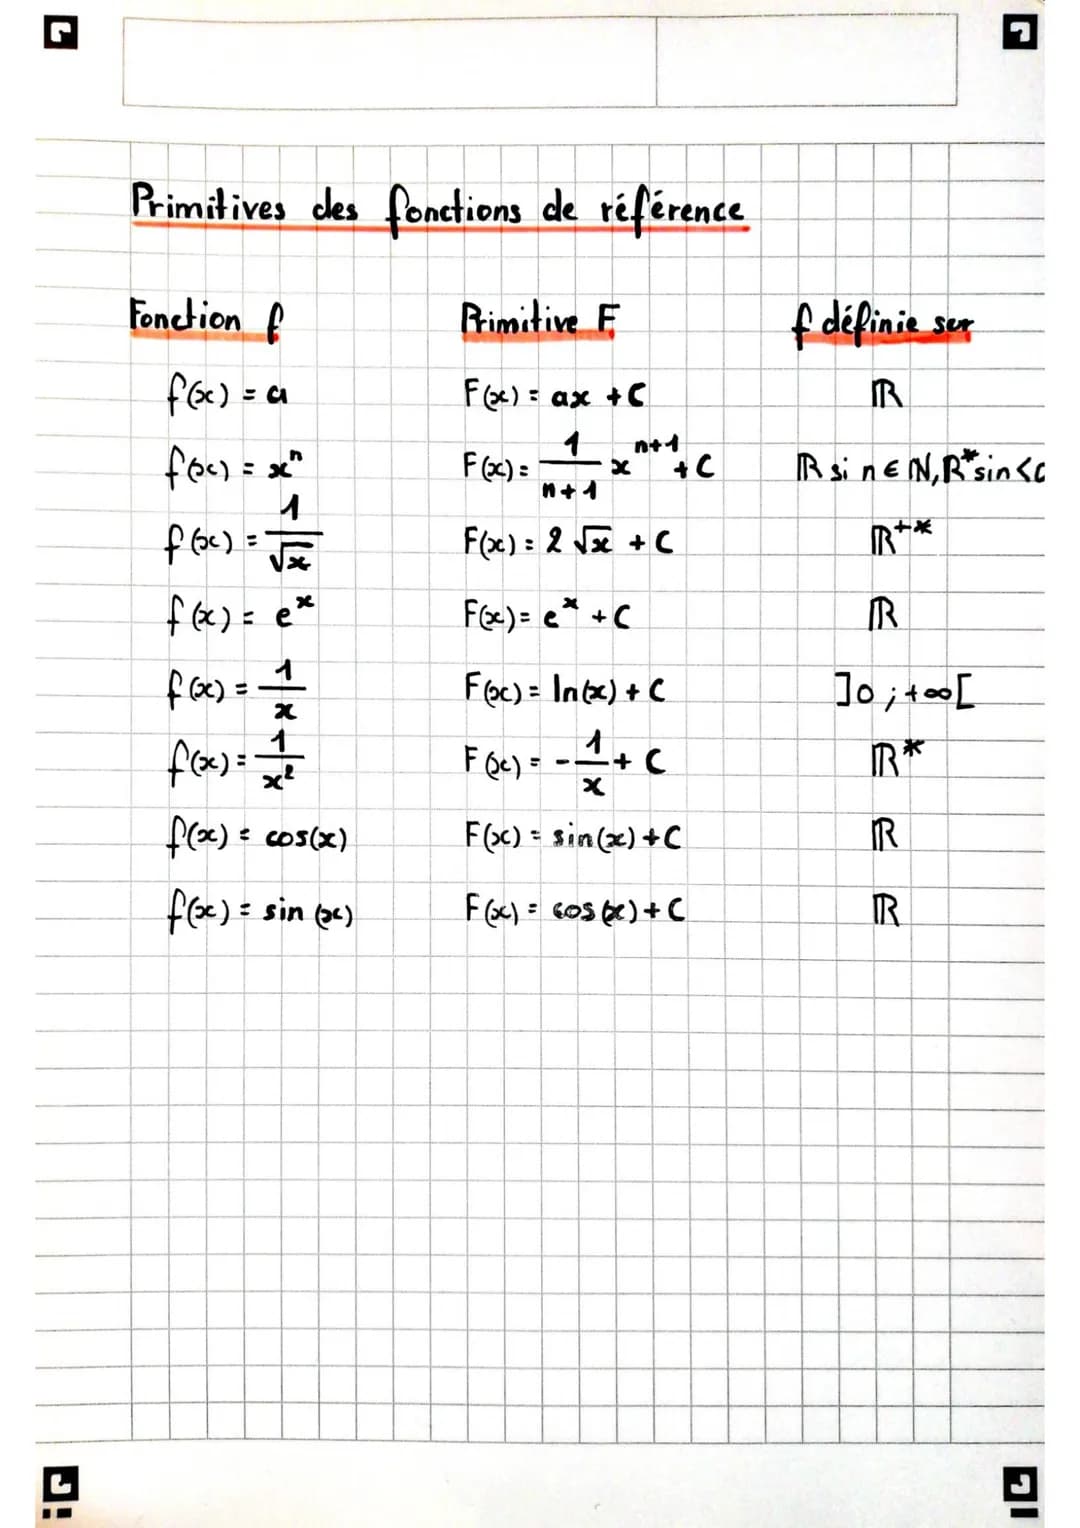 Primitives des fonctions de référence
Fonction f Primitive F f définie sur
f(x) = a F(x) = ax + C ℝ
f(x) = xⁿ F(x) = 1/(n+1) xⁿ⁺¹ + C ℝ si n ∈ ℕ, ℝ* si n <
f(x) = 1/√x F(x) = 2 √x + C ℝ⁺*
f(x) = eˣ F(x) = eˣ + C ℝ
f(x) = 1/x F(x) = ln(x) + C ]0 ; +∞[
f(x) = 1/x² F(x) = - 1/x + C ℝ*
f(x) = cos(x) F(x) = sin(x) + C ℝ
f(x) = sin(x) F(x) = cos(x) + C ℝ